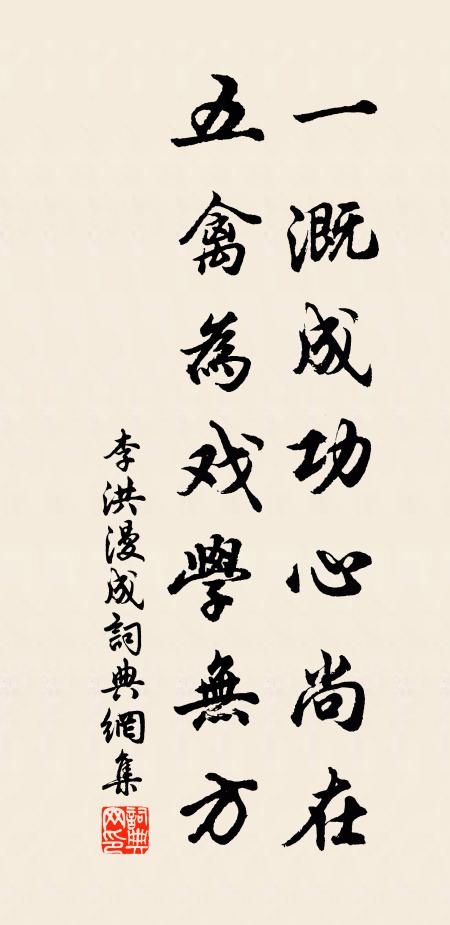 一溉成功心尚在
五禽為戏學無方
李洪漫成詞典網集
詞典
网印